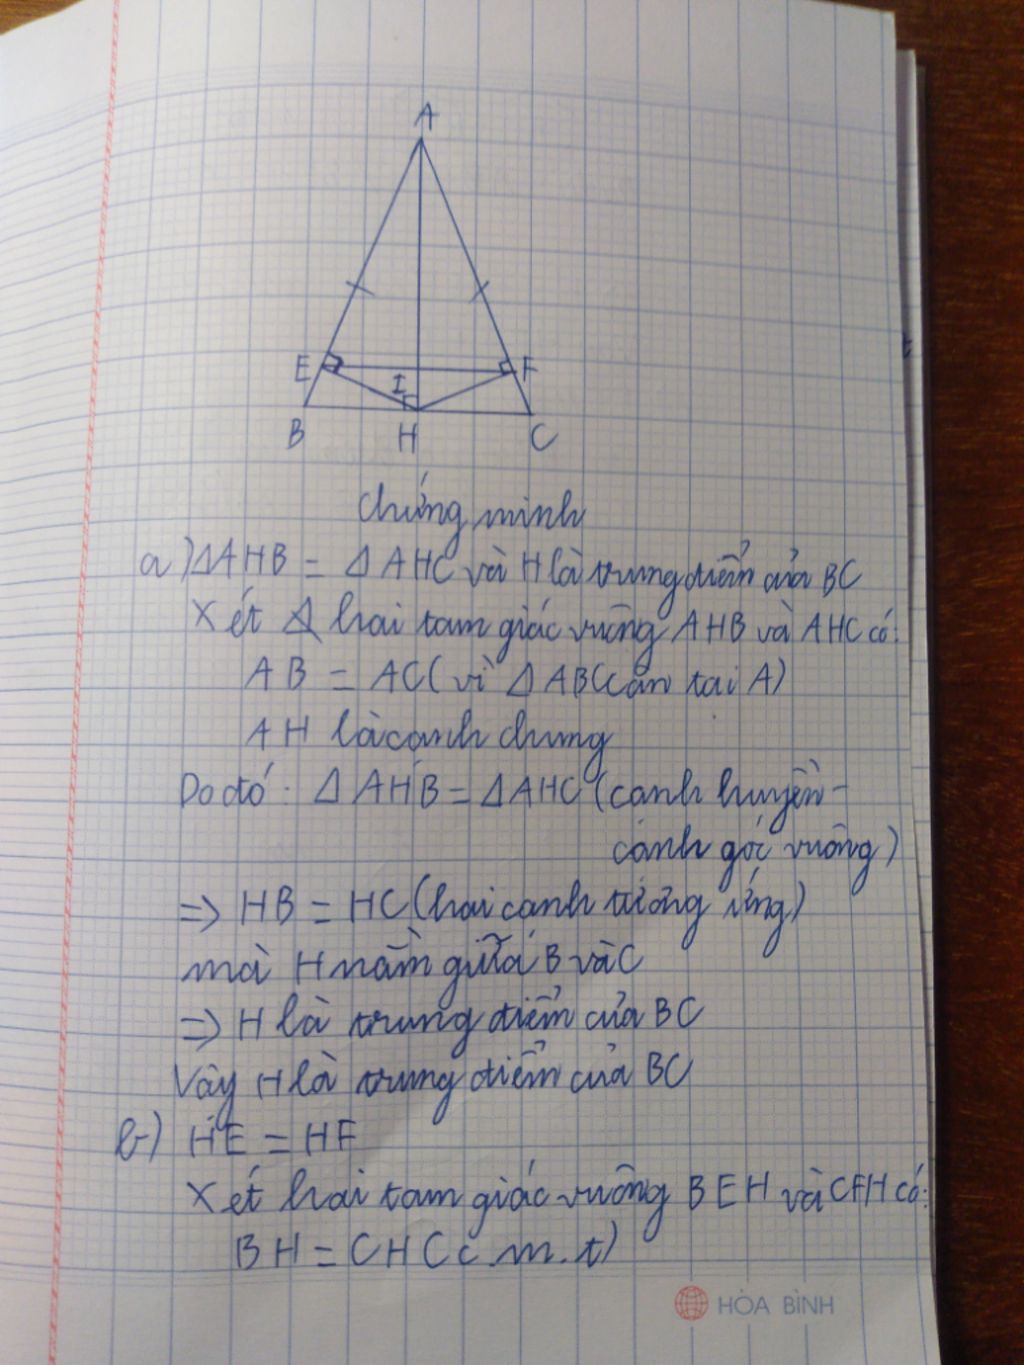 A
E
I
F
B
H
C
Chứng minh
a) ΔAHB = ΔAHC và H là trung điểm của BC
Xét hai tam giác vuông AHB và AHC có:
AB = AC (vì ΔABC cân tại A)
AH là cạnh chung
Do đó: ΔAHB = ΔAHC (cạnh huyền -
cạnh góc vuông)
=> HB = HC (hai cạnh tương ứng)
mà H nằm giữa B và C
=> H là trung điểm của BC
Vậy H là trung điểm của BC
b) HE = HF
Xét hai tam giác vuông BEH và CFH có:
BH = CH (c.m.t)
HÒA BÌNH